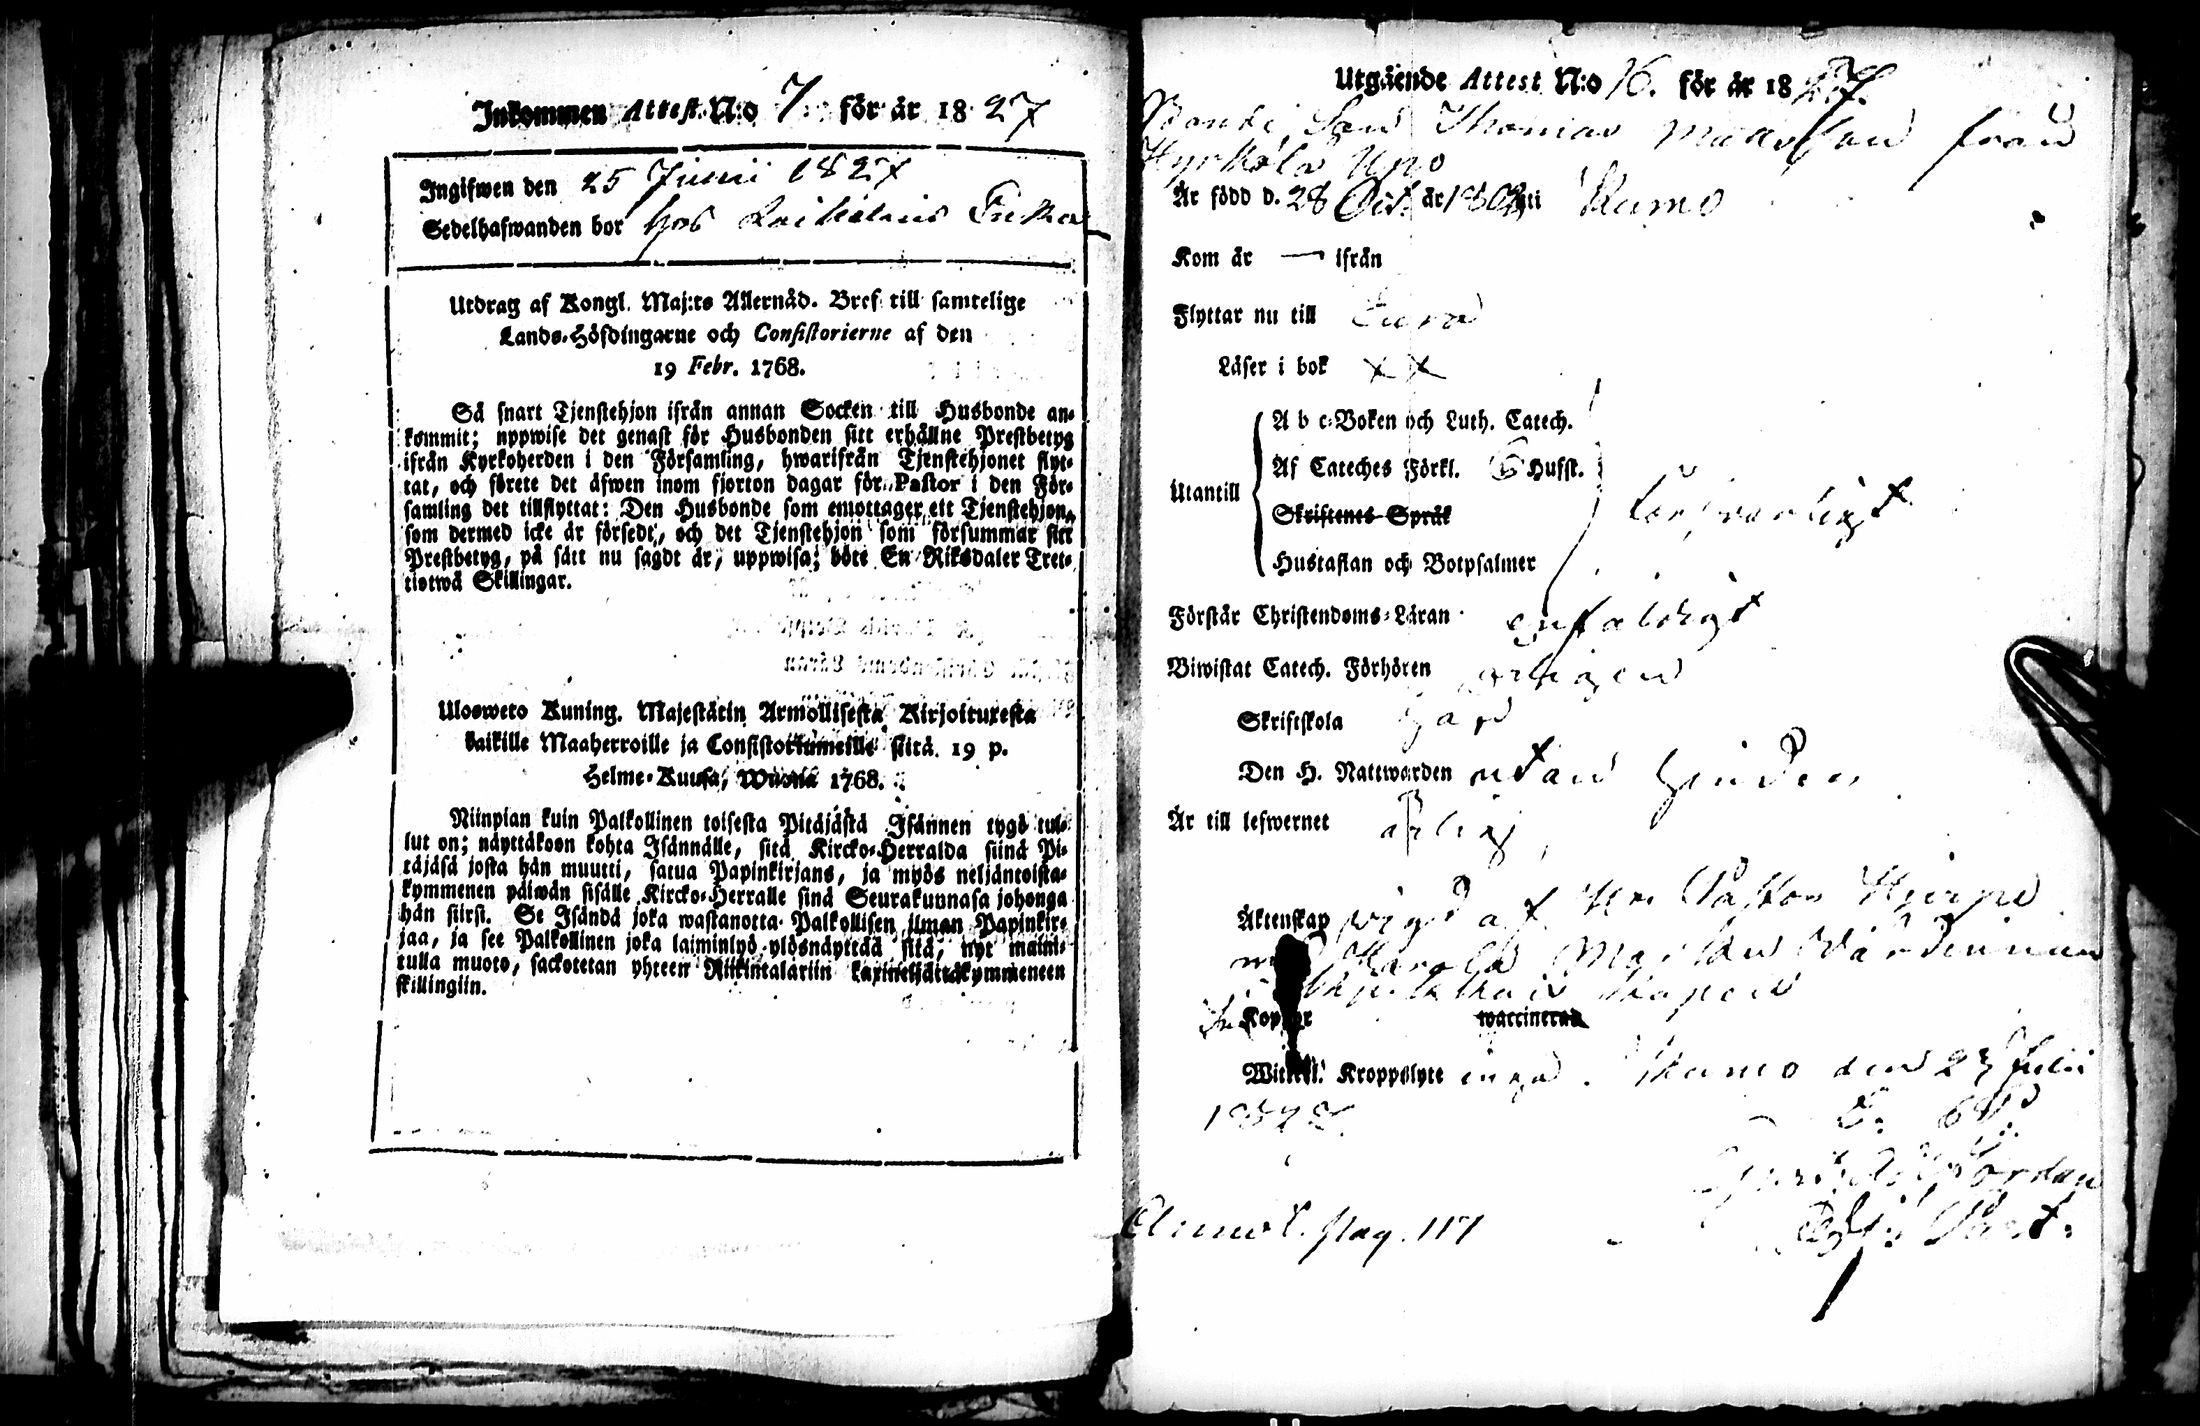 Inkommen Attest N:o 7. för år 1827
Ingifwen den 25 Junii 1827
Sedelhafwanden bor hos
Utdrag af Kongl. Maj:ts Allernåd. Bref till samtelige
Lands-Höfdingarne och Consistorierne af den
19 Febr. 1768.
Så snart Tjenstehjon ifrån annan Socken till Husbonde an-
kommit; uppwise det genast för Husbonden sitt erhållne Prestbetyg
ifrån Kyrkoherden i den Församling, hwarifrån Tjenstehjonet flyt-
tat, och förete det äfwen inom fjorton dagar för Pastor i den För-
samling det tillflyttat: Den Husbonde som emottager ett Tjenstehjon,
som dermed icke är försedt, och det Tjenstehjon som försummar sitt
Prestbetyg, på sätt nu sagdt är, uppwisa; böte En Riksdaler Tret-
tiotwå Skillingar.
Ulosweto Kuning. Majestätin Armollisesta Kirjoituxesta
kaikille Maaherroille ja Consistoriumeille siitä 19 p.
Helme-Kuusa, Wuona 1768.
Niinpian kuin Palkollinen toisesta Pitäjästä Isännen tygö tul-
lut on; näyttäkoon kohta Isännälle, sitä Kircko-Herralda siinä Pi-
täjäsä josta hän muutti, saatua Papinkirjans, ja myös neljäntoista-
kymmenen päiwän sisälle Kircko-Herralle sinä Seurakunnasa johonga
hän siirsi. Se Isändä joka wastanotta Palkollisen ilman Papinkir-
jaa, ja see Palkollinen joka laiminlyö ylösnäyttää sitä, nyt maini-
tulla muoto, sackotetan yhteen Riikintalariin kaxineljättäkymmeneen
skillingiin.
Utgående Attest N:o 16. för år 1827.
Bonde Son Thomas Matsson från
Är född d. 28 Oct. år i Kumo
Kom år — ifrån
Flyttar nu till Eura
Läser i bok x x
A b c-Boken och Luth. Catech.
Af Cateches Förkl. 6 Hufst.
Utantill
Skriftenes Språk
försvarligt
Hustaflan och Botpsalmer
Förstår Christendoms-Läran enfaldigt
Biwistat Catech. Förhören årligen
Skriftskola
Den H. Nattwarden utan hinder
Är till lefwernet ärlig
Äktenskap wigd af Hr Pastor
med
Koppor waccinerad
Kroppslyte inga. Kumo den 23 Julii
1827.
Annot. Pag. 117